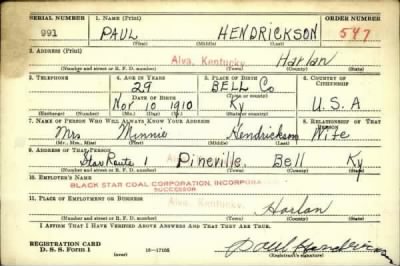 SERIAL NUMBER 1. NAME (Print) ORDER NUMBER
991 PAUL HENDRICKSON 547
(First) (Middle) (Last)
2. ADDRESS (Print)
Alva, Kentucky Harlan
(Number and street or R. F. D. number) (Town) (County) (State)
3. TELEPHONE 4. AGE IN YEARS 5. PLACE OF BIRTH 6. COUNTRY OF CITIZENSHIP
29 BELL Co
DATE OF BIRTH (Town or county)
Nov 10 1910 Ky U.S.A
(Exchange) (Number) (Mo.) (Day) (Yr.) (State or country)
7. NAME OF PERSON WHO WILL ALWAYS KNOW YOUR ADDRESS 8. RELATIONSHIP OF THAT PERSON
Mrs Minnie Hendrickson Wife
(Mr., Mrs., Miss) (First) (Middle) (Last)
9. ADDRESS OF THAT PERSON
Star Route 1 Pineville, Bell Ky
(Number and street or R. F. D. number) (Town) (County) (State)
10. EMPLOYER'S NAME
BLACK STAR COAL CORPORATION,
SUCCESSOR
11. PLACE OF EMPLOYMENT OR BUSINESS
Alva, Kentucky Harlan
(Number and street or R. F. D. number) (Town) (County) (State)
I AFFIRM THAT I HAVE VERIFIED ABOVE ANSWERS AND THAT THEY ARE TRUE.
REGISTRATION CARD
D. S. S. Form 1 (over) 16-17105 Paul Hendrickson
(Registrant's signature)